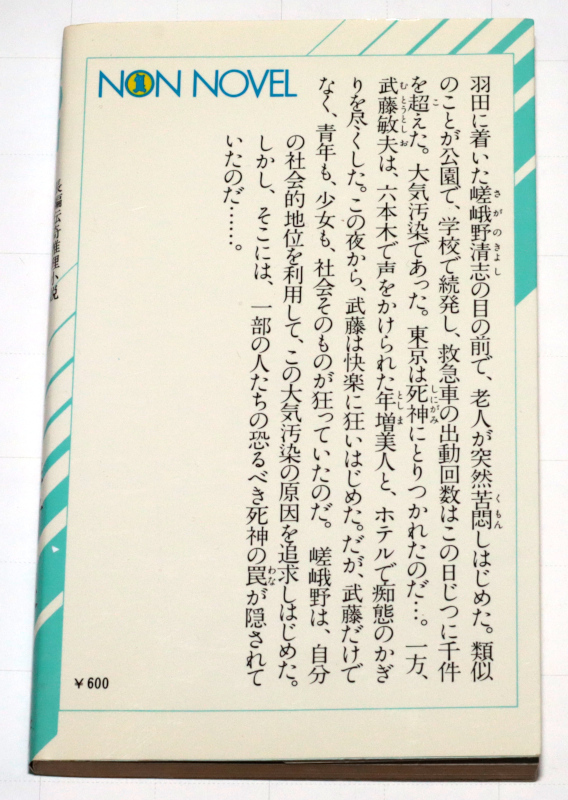 NON NOVEL
羽田に着いた嵯峨野清志の目の前で、老人が突然苦悶しはじめた。類似
のことが公園で、学校で続発し、救急車の出動回数はこの日じつに千件
を超えた。大気汚染であった。東京は死神にとりつかれたのだ…。一方、
武藤敏夫は、六本木で声をかけられた年増美人と、ホテルで痴態のかぎ
りを尽くした。この夜から、武藤は快楽に狂いはじめた。だが、武藤だけで
なく、青年も、少女も、社会そのものが狂っていたのだ。　嵯峨野は、自分
の社会的地位を利用して、この大気汚染の原因を追求しはじめた。
しかし、そこには、一部の人たちの恐るべき死神の罠が隠されて
いたのだ……。
￥600
長編伝奇推理小説